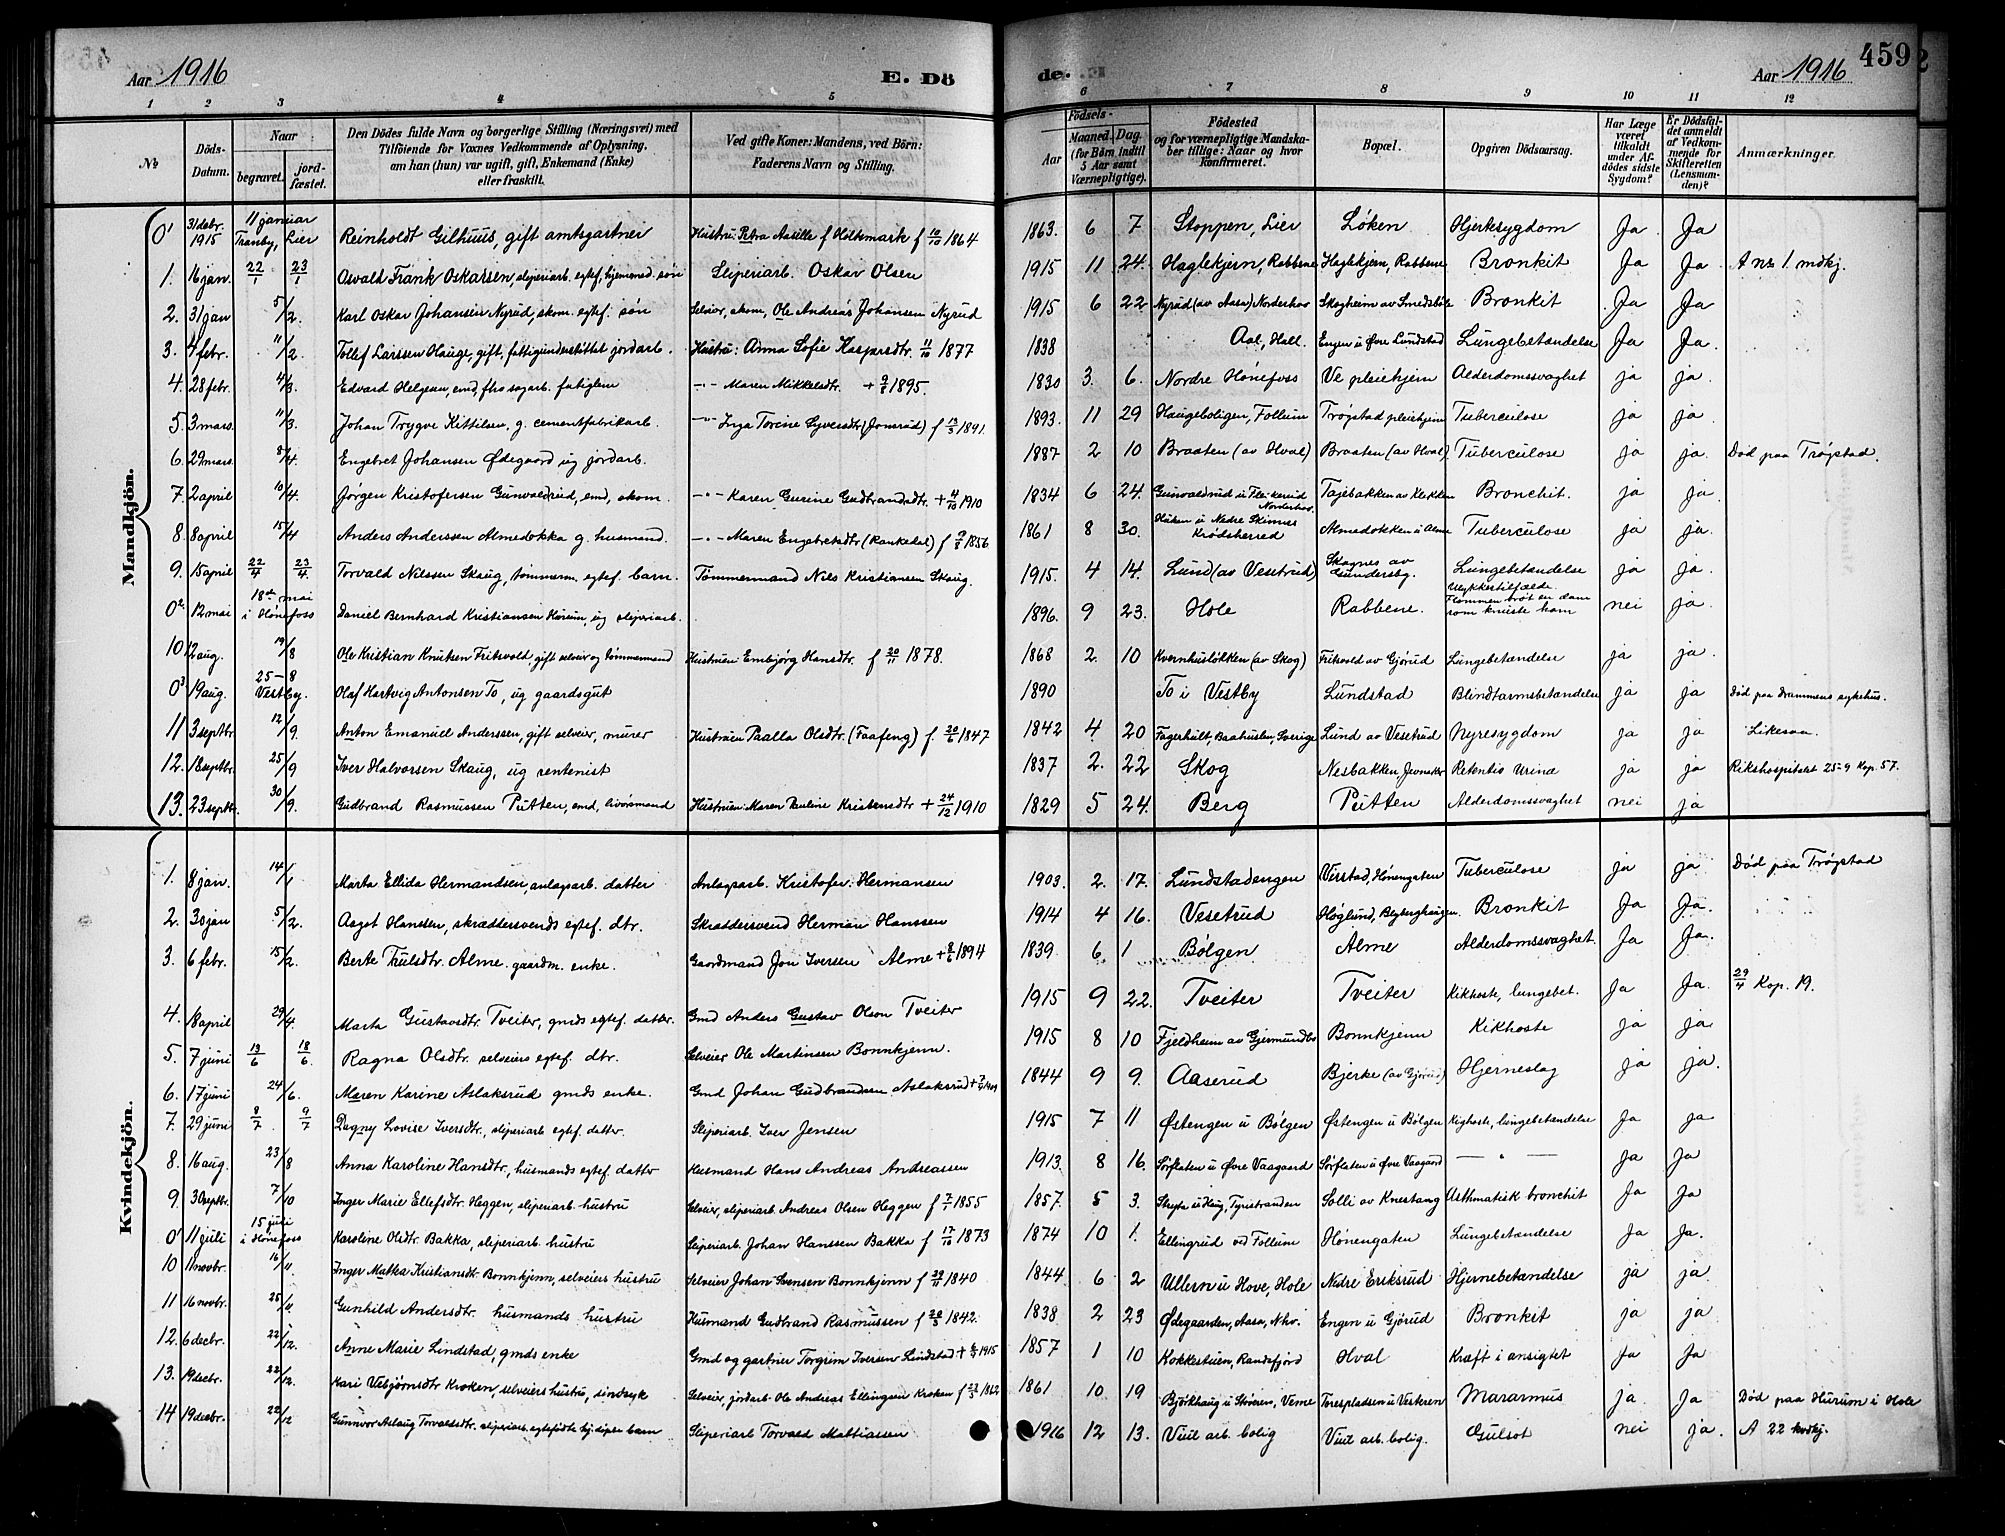 Aar 1916
E. Dö
de. E.
Aar 1916
459
1 2 3 4 5 6 7 8 9 10 11 12
No
Döds-Datum.
Naar begravet. jordfæstet.
Den Dödes fulde Navn og borgerlige Stilling (Næringsvei) med Tilföiende for Voxnes Vedkommende af Oplysning, om han (hun) var ugift, gift, Enkemand (Enke) eller fraskilt.
Ved gifte Koner: Mandens, ved Börn: Faderens Navn og Stilling.
Födsels- Aar Maaned. Dag. (for Börn indtil 5 Aar samt Værnepligtige).
Födested og for værnepligtige Mandskaber tillige: Naar og hvor Konfirmeret.
Bopæl.
Opgiven Dödsaarsag.
Har Læge været tilkaldt under Afdödes sidste Sygdom?
Er Dödsfaldet anmeldt af Vedkommende for Skifteretten (Lensmanden)?
Anmærkninger.
Mandkjön.
0¹ 31 debr. 1915 11 januar Tranby, Lier Reinholdt Gilhuus, gift amtsgartner Hustru: Petra Aasille f Holtsmark f 10/10 1864 1863. 6 7 Stoppen, Lier Løken Hjerksygdom Ja. Ja
1. 16 jan. 22/1 23/1 Osvald Frank Oskarsen, sliperiarb. egtef. hjemmed. søn Sliperiarb. Oskar Olsen 1915 11 24. Haglekjern, Rabbene Haglekjern, Rabbene Bronkit Ja Ja. A nr 1 mdkj.
2. 31 jan 5/2. Karl Oskar Johansen Nyrud, skom. egtef. søn Selveier, skom, Ole Andreas Johansen Nyrud 1915 6 22 Nyrud (av Aasa) Norderhov Skogheim av Smedsbøle Bronkit Ja Ja
3. 4 febr. 11/2. Tollef Larssen Hauge, gift, fattigunderstøttet jordarb. Hustru: Anna Sofie Kaspersdtr. 11/10 1877 1838 Aal, Hall. Engen u Øvre Lundstad Lungebetændelse Ja Ja.
4. 28 febr. 4/3. Edvard Helgesen, emd, fhv sagarb. fatiglem —"— Maren Mikkelsdtr. + 9/6 1895. 1830 3. 6. Nordre Hønefoss Ve pleiehjem Alderdomssvaghet ja ja.
5. 3 mars. 11/3. Johan Trygve Kittilsen, g. cementfabrikarb. —"— Inga Torine Syversdtr. (Jonsrud) f 13/3 1891. 1893. 11 29 Haugeboligen, Follum Trøgstad pleiehjem Tuberculose ja ja.
6. 29 mars. 8/4. Engebret Johansen Ødegaard ug jordarb. 1887 2 10 Braaten (av Hval) Braaten (av Hval) Tuberculose ja ja. Død paa Trøgstad.
7. 2 april 10/4. Jørgen Kristofersen Gunvaldrud, emd, skom. —"— Karen Gurine Gudbrandsdtr. + 4/10 1910 1834 6 24. Gunvaldrud u Fleskerud Norderhov. Tajebakken av Klekken Bronchit. ja ja.
8. 8 april 15/4 Anders Anderssen Almedokka g. husmand. —"— Maren Engebretsdtr. (Rankedal) f 9/8 1856 1861 8 30. Haken u Nedre Skinnes Krødsherred Almedokken u Alme Tuberculose ja ja.
9. 15 april 22/4 23/4. Torvald Nilssen Skaug, tømmerm. egtef. barn. Tømmermand Nils Kristiansen Skaug. 1915. 4 14. Lund (av Vesetrud) Skognes av Gundersby. Lungebetændelse ja ja
0². 12 mai 18de mai i Hønefoss Daniel Bernhard Kristiansen Hurum, ug sliperiarb. 1896. 9 23. Hole Rabbene. Ulykkestilfælde Flommen brøt en dam som knuste ham nei ja.
10 12 aug. 19/8 Ole Kristian Knutsen Fritsvold, gift selveier og tømmermand Hustruen: Embjørg Hansdtr. f 20/11 1878. 1868 2. 10 Kvernhusløkken (av Skog) Fritsvold av Gjørud Lungebetændelse ja ja.
0³ 19 aug. 25-8 Vestby. Olaf Hartvig Antonsen To, ug gaardsgut 1890 To i Vestby Lundstad Blindtarmsbetændelse ja ja Død paa Drammens sykehus.
11 3 septbr. 12/9. Anton Emanuel Anderssen, gift selveier, murer Hustruen Paalla Olsdtr. (Faafeng) f. 20/6 1847 1842 4 20 Fagerhult, Baahuslen, Sverige Lund av Vesetrud Nyresygdom ja ja Likesaa.
12. 18 septbr. 25/9 Iver Halvorsen Skaug, ug rentenist 1837 2. 22 Skog Nesbakken, Jevnaker Retentio Urinæ ja ja Rikshospitalet 25-9 Kap. 57.
13. 23 septbr. 30/9. Gudbrand Rasmussen Putten, emd, livørsmand Hustruen: Maren Pauline Kristensdtr + 24/12 1910 1829 5 24. Berg Putten Alderdomssvaghet nei ja
Kvindekjön.
1. 8 jan. 14/1 Marta Ellida Hermandsen, anlagsarb. datter Anlagsarb. Kristofer. Hermansen 1903. 2. 17. Lundstadengen Virstad, Hønengaten Tuberculose ja ja Død paa Trøgstad
2. 30 jan 5/2. Aagot Hanssen, skræddersvends egtef. dtr. Skræddersvend Herman Hanssen 1914 4 16. Vesetrud Høglund, Blybergshaugen Bronkit Ja Ja.
3. 6 febr. 15/2. Berte Trulsdtr. Alme. gaardm. enke. Gaardmand Jon Iversen Alme + 8/6 1894 1839 6 1 Bølgen Alme Alderdomssvaghet. Ja Ja.
4. 18 april 29/4. Marta Gustavsdtr. Tveiter, gmds egtef. datter. Gmd Anders Gustav Olson Tveiter 1915 9 22. Tveiter Tveiter Kikhoste, lungebet. Ja Ja. 29/4 Kap. 19.
5. 7 juni 13/6 18/6. Ragna Olsdtr. selveiers egtef. dtr. Selveier Ole Martinsen Bonnkjenn. 1915 8 10 Fjeldheim av Gjermundbo Bonnkjenn Kikhoste ja ja
6. 17 juni 24/6. Maren Karine Aslaksrud gmds enke. Gmd Johan Gudbrandsen Aslaksrud 1844 9 9. Aaserud Bjerke (av Gjørud) Hjerneslag ja ja.
7. 29 juni 8/7 9/7 Dagny Lovise Iversdtr., sliperiarb egtef. datter. Sliperiarb. Iver Jensen 1915 7 11 Østengen u Bølgen Østengen u Bølgen Kighoste, lungebetændelse Ja ja
8. 16 aug. 23/8 Anna Karoline Hansdtr, husmands egtef. datter Husmand Hans Andreas Andreassen 1913. 8 16. Sørflaten u Øvre Vaagaard Sørflaten u Øvre Vaagaard — " — Ja Ja
9 30 septbr. 7/10 Inger Marie Ellefsdtr. Heggen, sliperiarb. hustru Selveier, sliperiarb. Andreas Olsen Heggen f 7/1 1855 1857. 5 3. Stryta u Haug, Tyristranden Solli av Knestang Asthmatisk bronchit Ja Ja
0¹ 11 juli 15 juli i Hønefoss Karoline Olsdtr. Bakka, sliperiarb. hustru Sliperiarb. Johan Hanssen Bakka f 17/10 1873 1874 10 1. Ellingrud ved Follum Hønengaten Lungebetændelse Ja Ja.
10 11 novbr. 16/11. Inger Matka Kristiansdtr. Bonnkjenn, selveiers hustru Selveier Johan Svensen Bonnkjenn f 29/11 1840 1844 6 2 Ullern u Hove, Hole Nedre Eriksrud Hjernebetændelse ja ja
11 16 novbr. 25/11 Gunhild Andersdtr. husmands hustru Husmand Gudbrand Rasmussen f 20/3 1842. 1838 2 23 Ødegaarden, Aasa, Nhv. Engen u Gjørud Bronkit ja ja
12. 6 decbr. 22/12. Anne Marie Lindstad gmds enke Gmd og gartner Torgrim Iversen Lindstad 1915 1857 1 10 Kokkestuen, Randsfjord Hval Kræft i ansigtet Ja Ja
13. 19 decbr. 22/12. Kari Vebjørnsdtr Kroken, selveiers hustru, sindssyk Selveier, jordarb. Ole Andreas Ellingsen Kroken f 23/3 1862 1861 10. 19 Bjørkhaug u Støveren, Veme Torespladsen u Vesteren Mararmus ja. Ja Død paa Hurum i Hole
14 19 decbr. 22/12 Gunnvor Aslaug Torvaldsdtr. sliperiarb. egtefødte hj.døpte barn Sliperiarb Torvald Mattiassen 1916 12 13. Viul arb. bolig Viul arb. bolig. Gulsot nei ja. A 22 kvdkj.